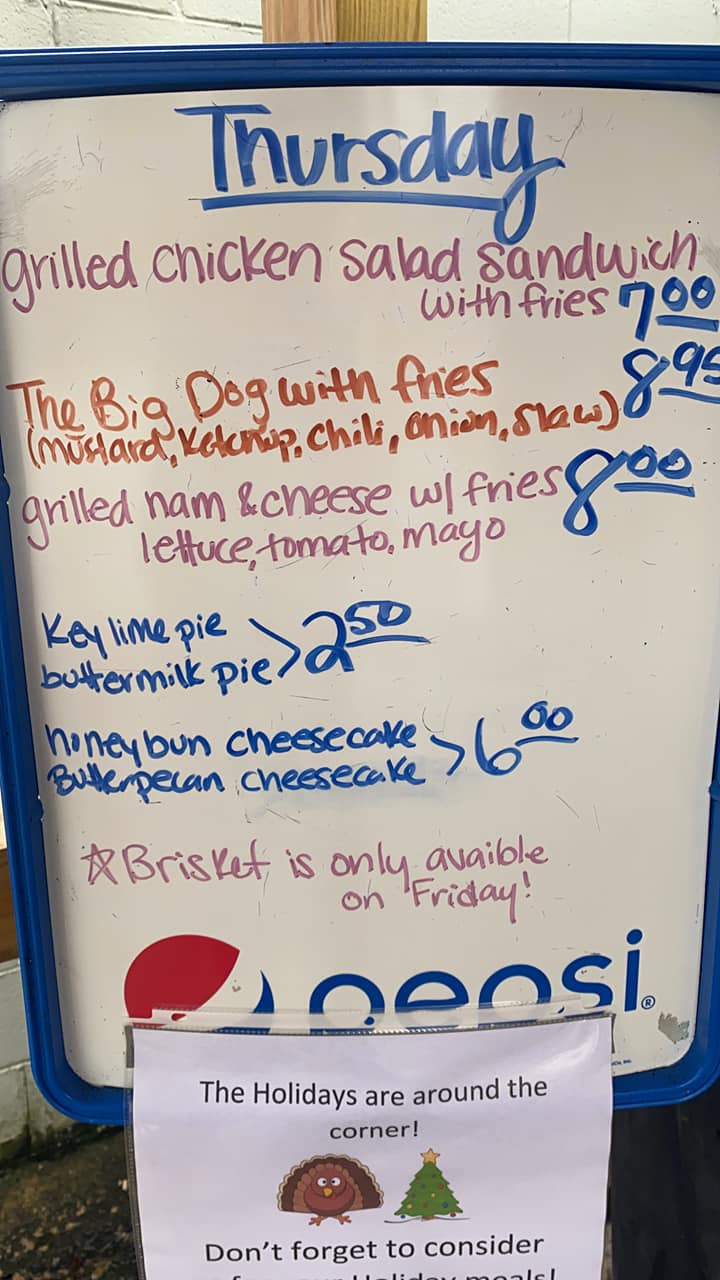 Thursday
grilled chicken salad sandwich
with fries 7.00
The Big Dog with fries 8.95
(mustard, Ketchup, Chili, onion, slaw)
grilled ham & cheese w/ fries 8.00
lettuce, tomato, mayo
Key lime pie
buttermilk pie > 2.50
honeybun cheesecake
Butterpecan cheesecake > 6.00
☆Brisket is only avaible
on Friday!
pepsi®
The Holidays are around the
corner!
Don't forget to consider
Holiday meals!